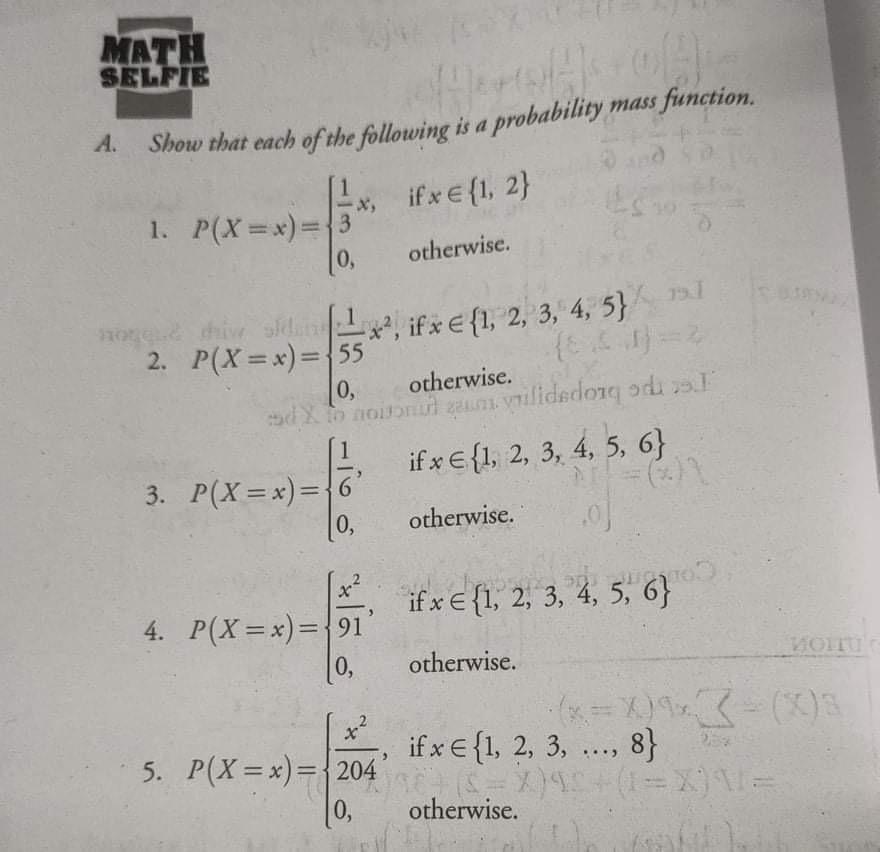 MATH
SELFIE
A. Show that each of the following is a probability mass function.
1. P(X = x) = { 1/3 x, if x ∈ {1, 2}
0, otherwise.
2. P(X = x) = { 1/55 x², if x ∈ {1, 2, 3, 4, 5}
0, otherwise.
3. P(X = x) = { 1/6, if x ∈ {1, 2, 3, 4, 5, 6}
0, otherwise.
4. P(X = x) = { x²/91, if x ∈ {1, 2, 3, 4, 5, 6}
0, otherwise.
5. P(X = x) = { x²/204, if x ∈ {1, 2, 3, ..., 8}
0, otherwise.